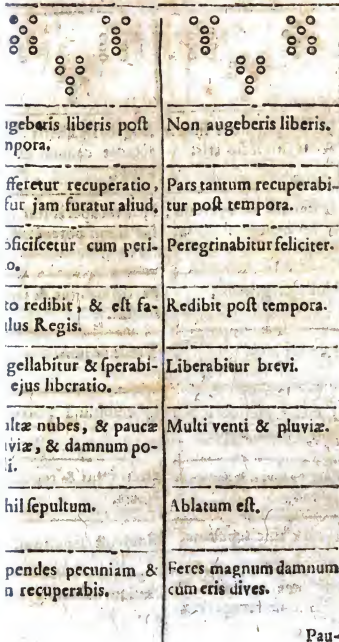 igeberis liberis post
npora.
fferetur recuperatio,
fur jam furatur aliud.
oficiscetur cum peri-
o.
to redibit, & est fa-
ulus Regis.
gellabitur & sperabi-
ejus libcratio.
ltæ nubes, & paucæ
viæ, & damnum po-
i.
hil sepultum.
pendes pecuniam &
n recuperabis.
Non augeberis liberis.
Pars tantum recuperabi-
tur post tempora.
Peregrinabitur feliciter.
Redibit post tempora.
Liberabitur brevi.
Multi venti & pluviæ.
Ablatum est.
Feres magnum damnum
cum eris dives.
Pau-